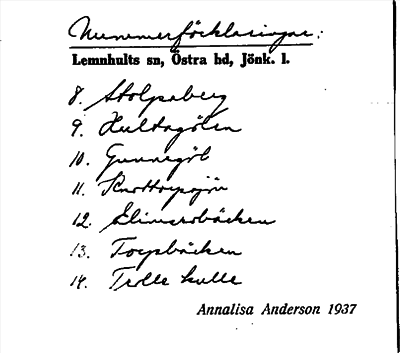 Nummerförklaringar:
Lemnhults sn, Östra hd, Jönk. l.
8. Stolpaberg
9. Huldagölen
10. Gunnagöl
11.
12.
13. Torpbäcken
14. Trolle kulle
Annalisa Anderson 1937